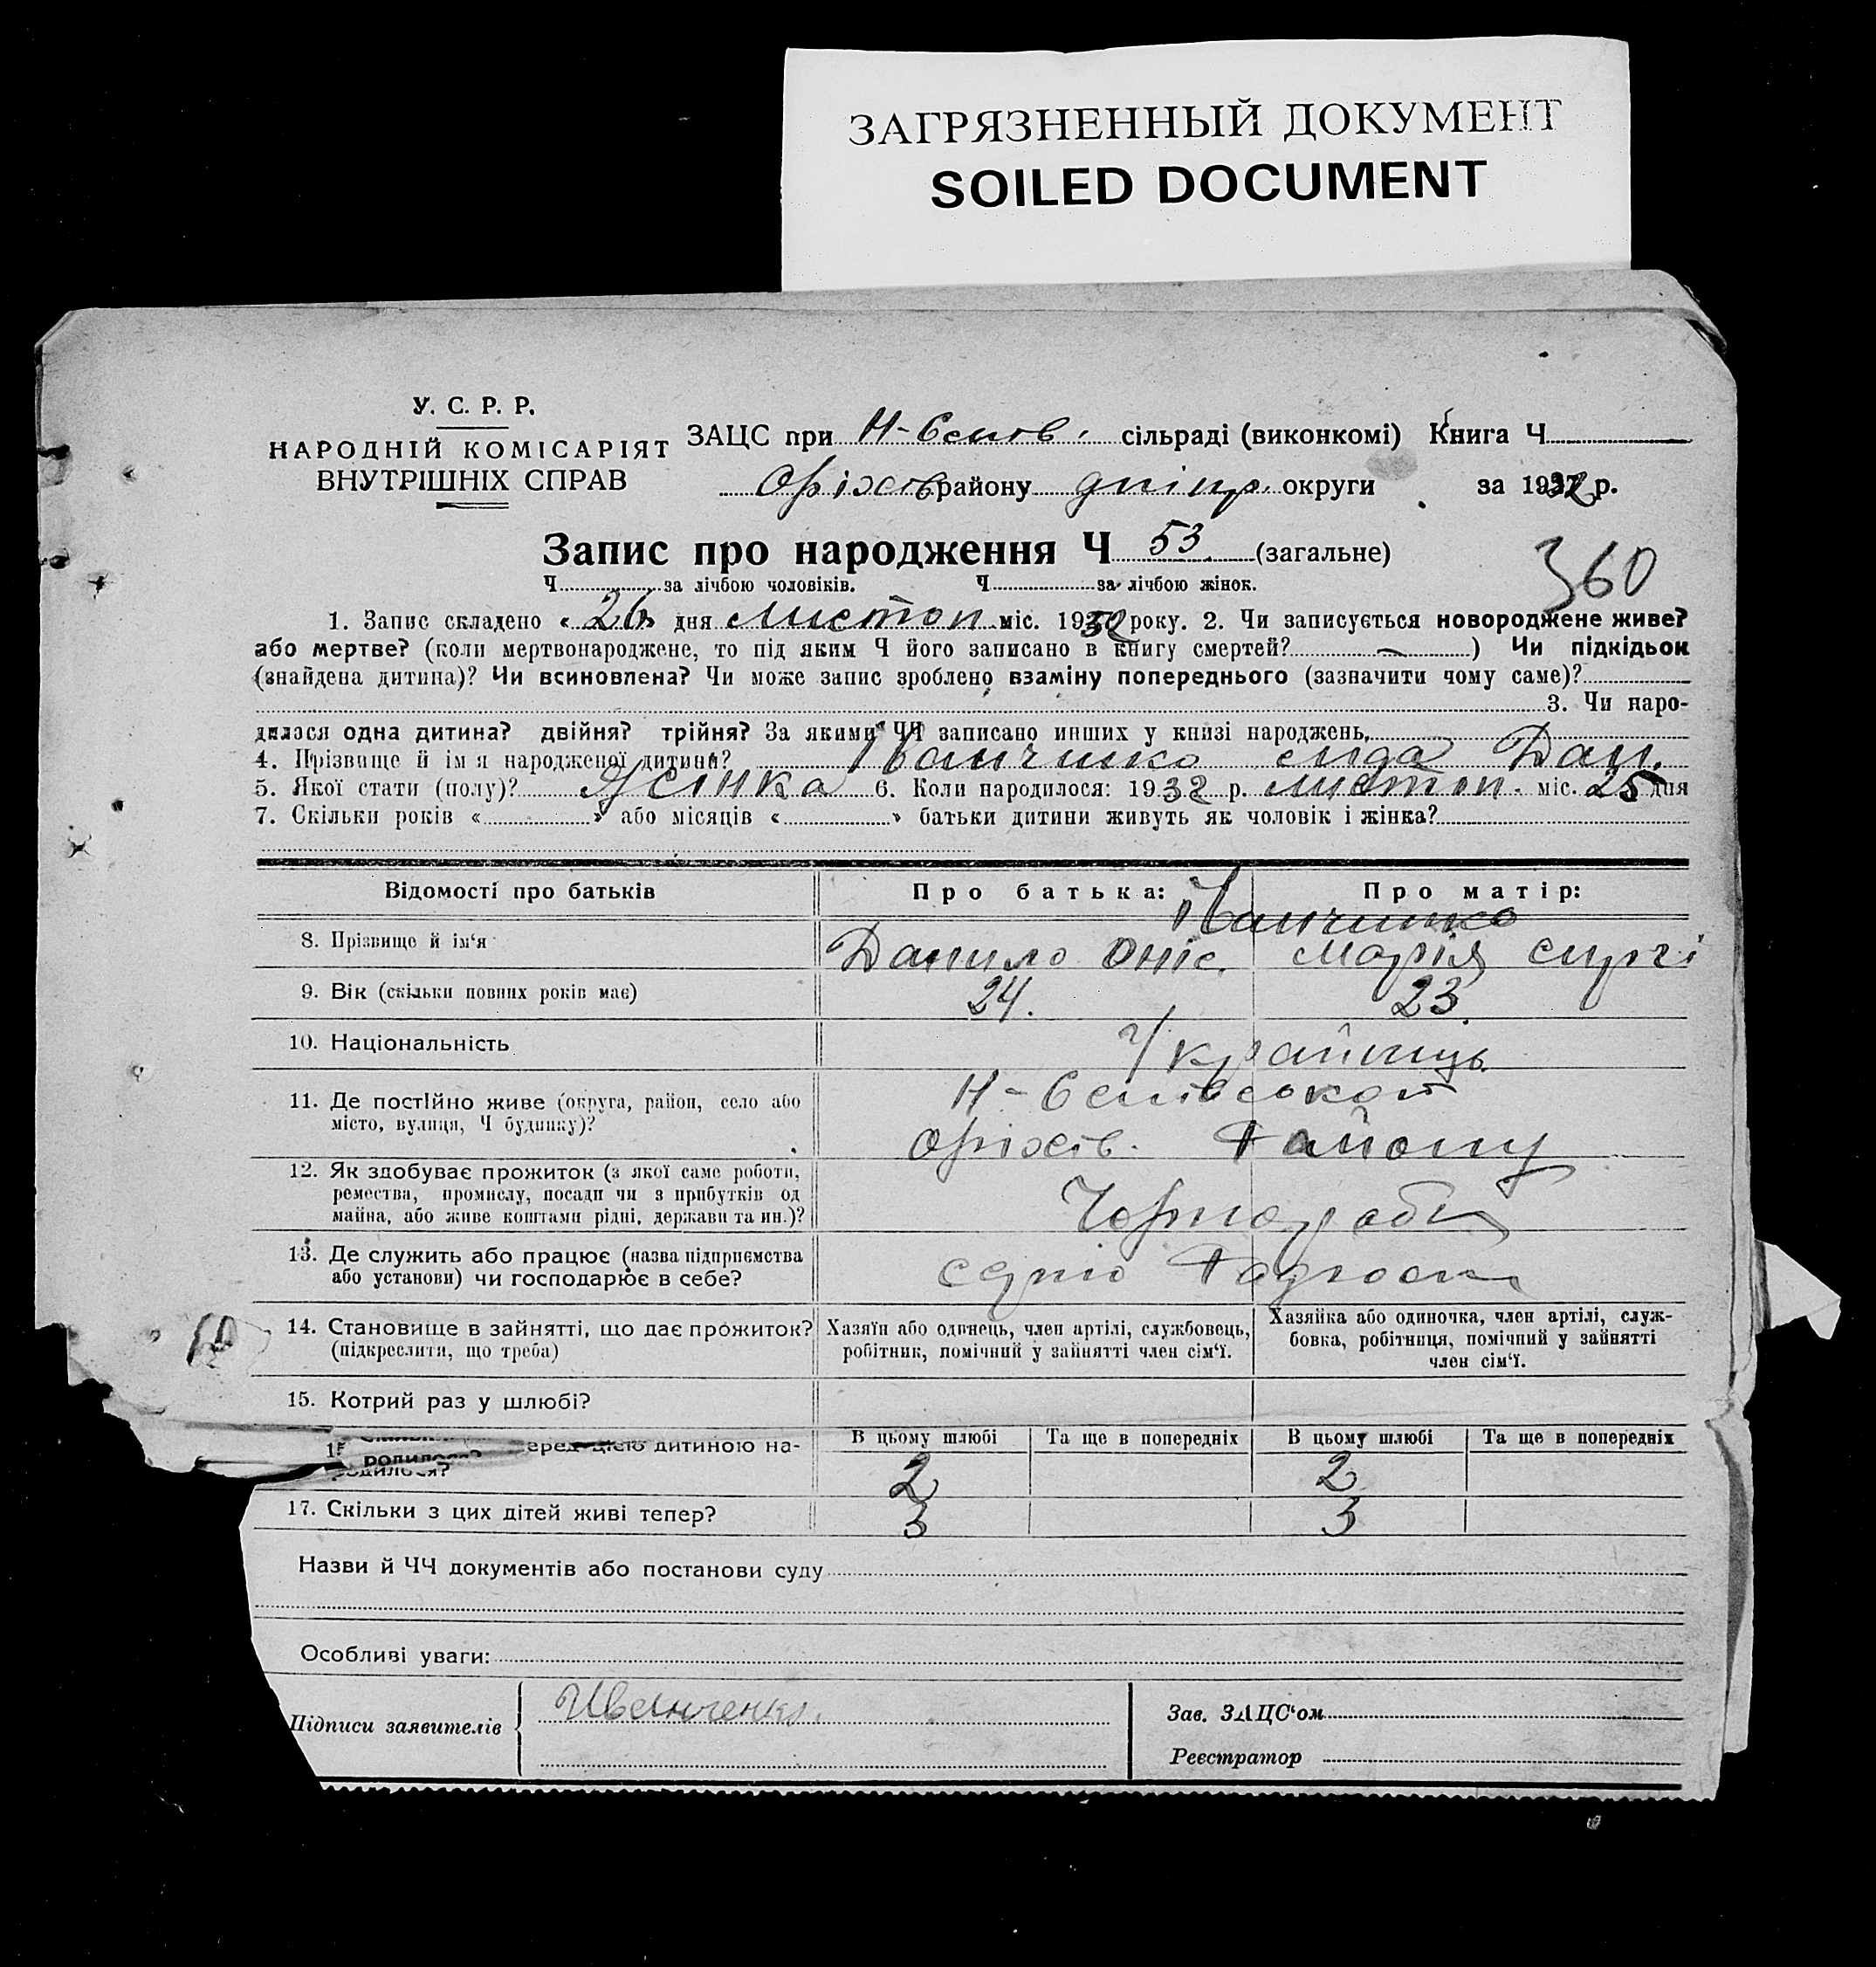 ЗАГРЯЗНЕННЫЙ ДОКУМЕНТ
SOILED DOCUMENT
У. С. Р. Р.
НАРОДНІЙ КОМІСАРІЯТ
ВНУТРІШНІХ СПРАВ
ЗАЦС при сільраді (виконкомі) Книга Ч
Оріхів району дніпр. округи за 1932 р.
Запис про народження Ч 53 (загальне)
360
Ч за лічбою чоловіків. Ч за лічбою жінок.
1. Запис складено « 26 » дня Листоп міс. 1932 року. 2. Чи записується новороджене живе?
або мертве? (коли мертвонароджене, то під яким Ч його записано в книгу смертей? — ) Чи підкідьок
(знайдена дитина)? Чи всиновлена? Чи може запис зроблено взаміну попереднього (зазначити чому саме)?
3. Чи наро-
дилося одна дитина? двійня? трійня? За якими ЧЧ записано инших у книзі народжень
4. Прізвище й ім'я народженої дитини? Дан.
5. Якої стати (полу)? Жінка 6. Коли народилося: 1932 р. листоп. міс. 25 дня
7. Скільки років « » або місяців « » батьки дитини живуть як чоловік і жінка?
Відомості про батьків Про батька: Про матір:
8. Прізвище й ім'я Данило Оніс. Марія
9. Вік (скільки повних років має) 24. 23.
10. Національність Українць
11. Де постІйно живе (округа, район, село або
місто, вулиця, Ч будинку)?
Оріхів. Району
12. Як здобуває прожиток (з якої саме роботи,
ремества, промислу, посади чи з прибутків од
майна, або живе коштами рідні, держави та ин.)?
Чорнораб
13. Де служить або працює (назва підприємства
або установи) чи господарює в себе?
14. Становище в зайнятті, що дає прожиток?
(підкреслити, що треба)
Хазяїн або одинець, член артілі, службовець,
робітник, помічний у зайнятті член сім'ї.
Хазяйка або одиночка, член артілі, служ-
бовка, робітниця, помічний у зайнятті
член сім'ї.
15. Котрий раз у шлюбі?
В цьому шлюбі Та ще в попередніх В цьому шлюбі Та ще в попередніх
дитиною на-
родилося?
2 2
17. Скільки з цих дітей живі тепер? 3 3
Назви й ЧЧ документів або постанови суду
Особливі уваги:
Підписи заявителів Иванченко.
Зав. ЗАЦС'ом
Реєстратор